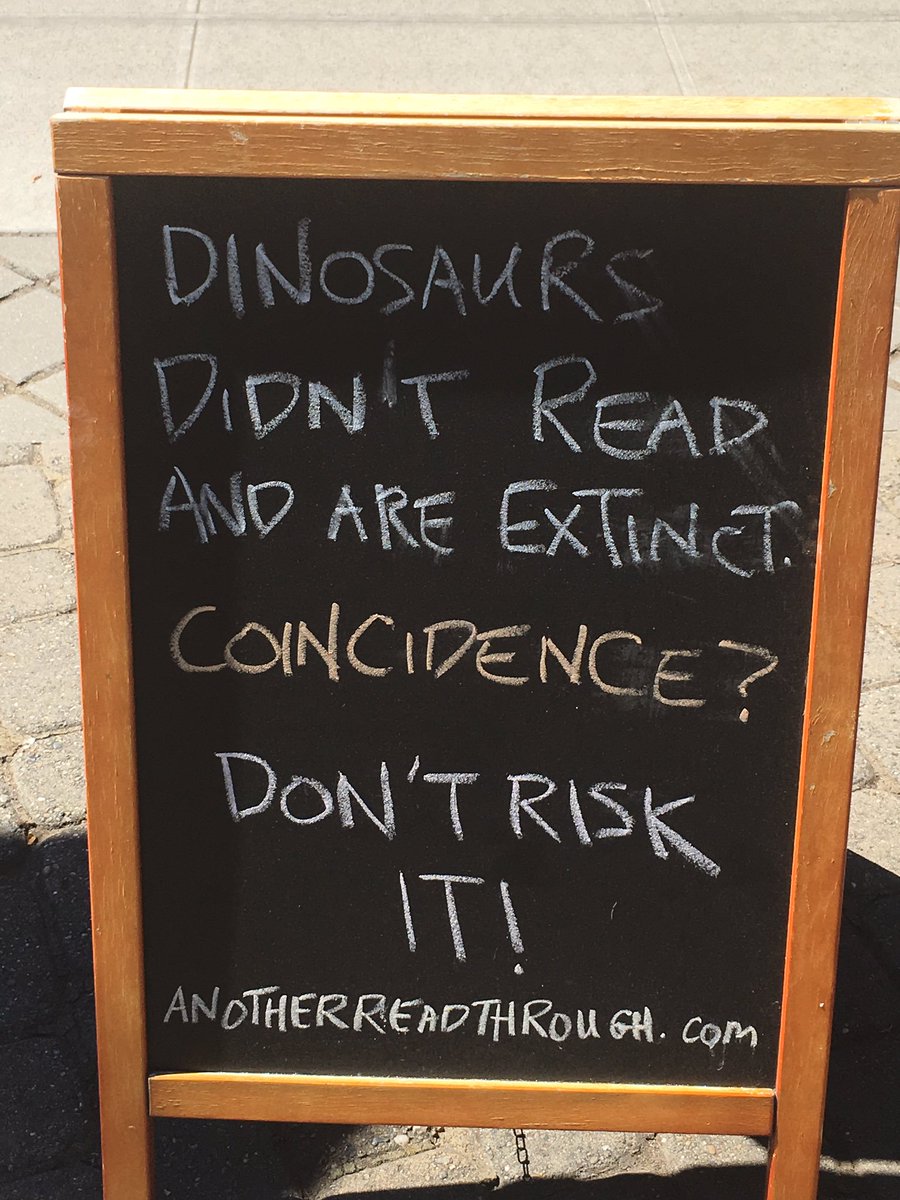 DINOSAURS
DIDN'T READ
AND ARE EXTINCT.
COINCIDENCE?
DON'T RISK
IT!
ANOTHERREADTHROUGH.com